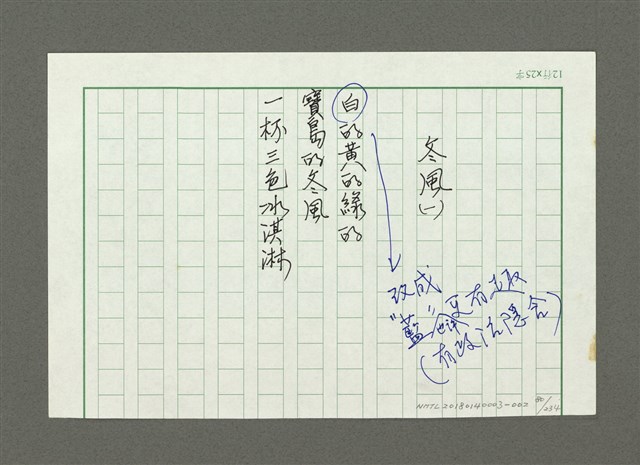 12行×25字
冬風(一)
白的黃的綠的
寶島的冬風
一杯三色冰淇淋
改成
"藍"也許更有趣
(有政治隱含)
NMTL20180140003-002
80/234